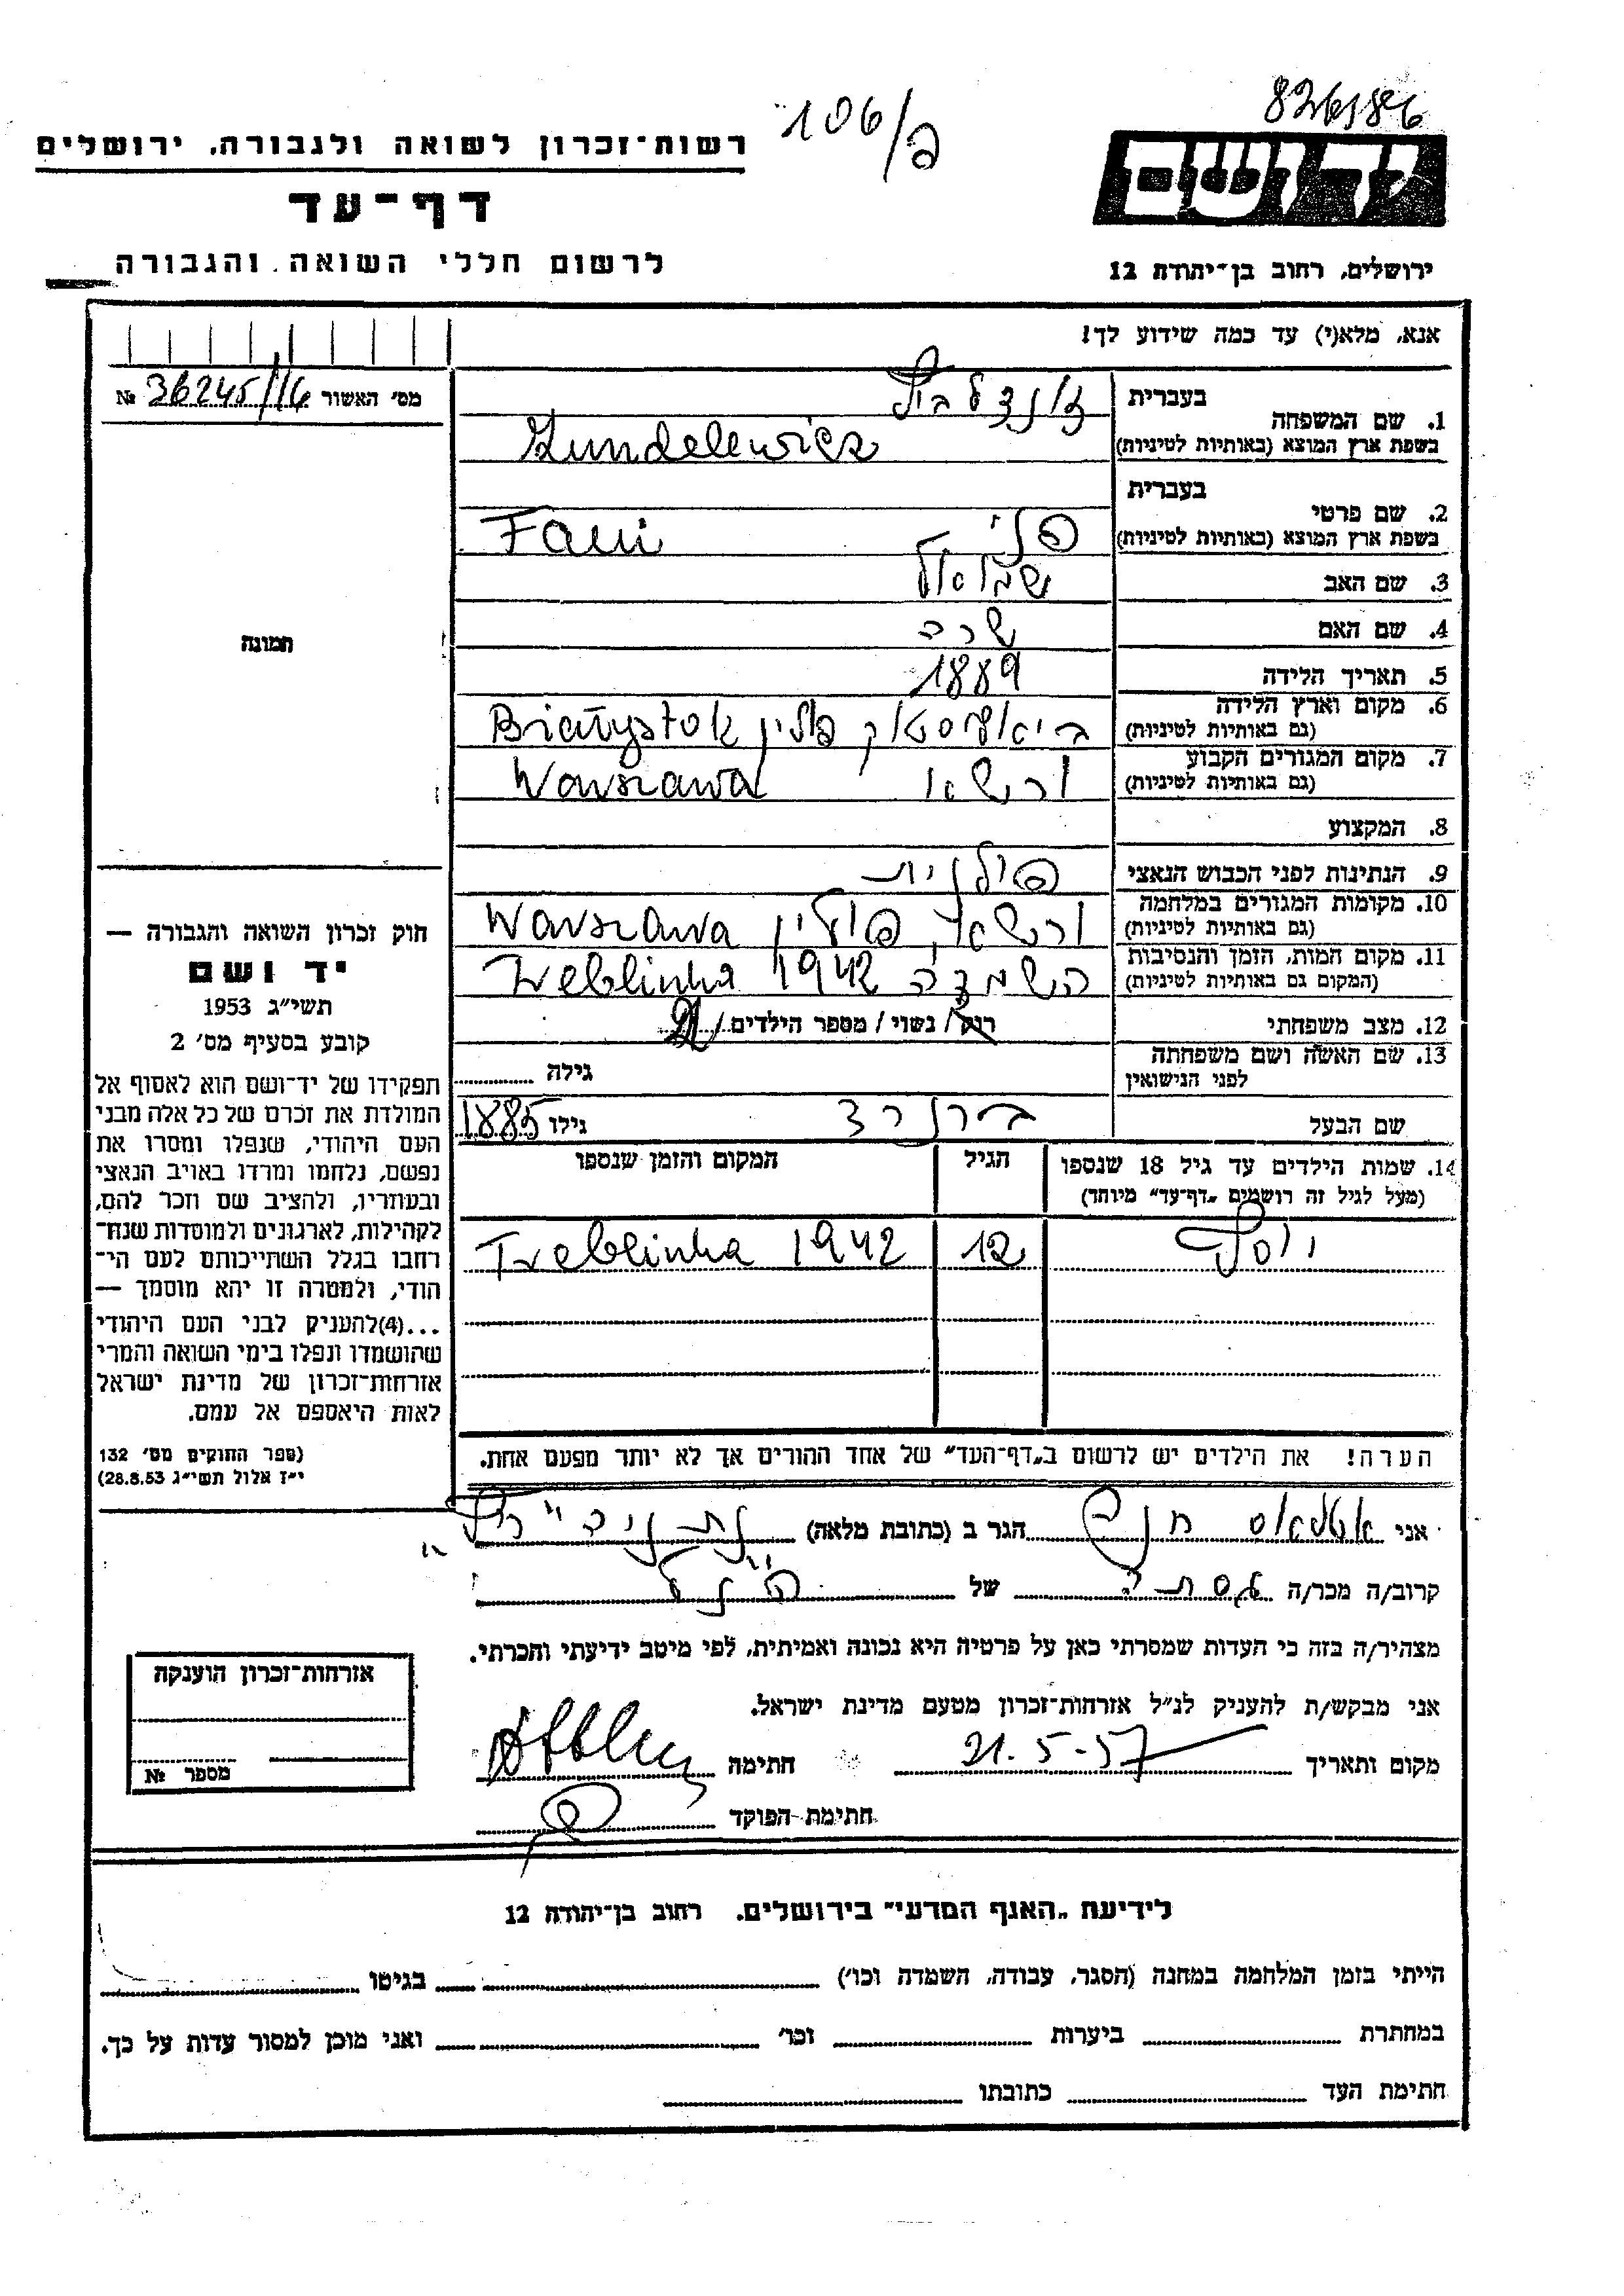 826186
106/פ
רשות־זכרון לשואה ולגבורה, ירושלים
דף־עד
לרשום חללי השואה והגבורה
ידושם
ירושלים, רחוב בן־יהודה 12
אנא, מלא(י) עד כמה שידוע לך!
מס׳ האשור 36245/16 №
תמונה
חוק זכרון השואה והגבורה —
יד ושם
תשי״ג 1953
קובע בסעיף מס׳ 2
תפקידו של יד־ושם הוא לאסוף אל
המולדת את זכרם של כל אלה מבני
העם היהודי, שנפלו ומסרו את
נפשם, נלחמו ומרדו באויב הנאצי
ובעוזריו, ולהציב שם וזכר להם,
לקהילות, לארגונים ולמוסדות שנח־
רחבו בגלל השתייכותם לעם הי־
הודי, ולמטרה זו יהא מוסמך —
...(4)להעניק לבני העם היהודי
שהושמדו ונפלו בימי השואה והמרי
אזרחות־זכרון של מדינת ישראל
לאות היאספם אל עמם.
(ספר החוקים מס׳ 132
י״ז אלול תשי״ג 28.8.53)
בעברית
1. שם המשפחה
בשפת ארץ המוצא (באותיות לטיניות) Zundelewicz
בעברית
2. שם פרטי
בשפת ארץ המוצא (באותיות לטיניות) פני Fani
3. שם האב שמואל
4. שם האם שרה
5. תאריך הלידה 1889
6. מקום וארץ הלידה ביאליסטוק פולין Białystok
(גם באותיות לטיניות)
7. מקום המגורים הקבוע ורשא Warszawa
(גם באותיות לטיניות)
8. המקצוע
9. הנתינות לפני הכבוש הנאצי פולנית
10. מקומות המגורים במלחמה ורשא, פולין Warszawa
(גם באותיות לטיניות)
11. מקום המות, הזמן והנסיבות השמדה 1942 Treblinka
(המקום גם באותיות לטיניות)
12. מצב משפחתי רווק/ נשוי/ מספר הילדים/
13. שם האשה ושם משפחתה
לפני הנישואין גילה
שם הבעל ברנרד גילו 1885
14. שמות הילדים עד גיל 18 שנספו הגיל המקום והזמן שנספו
(מעל לגיל זה רושמים „דף־עד״ מיוחד)
יוסף 12 Treblinka 1942
הערה! את הילדים יש לרשום ב„דף־העד״ של אחד ההורים אך לא יותר מפעם אחת.
אני הגר ב (כתובת מלאה)
קרוב/ה מכר/ה של
מצהיר/ה בזה כי העדות שמסרתי כאן על פרטיה היא נכונה ואמיתית, לפי מיטב ידיעתי והכרתי.
אני מבקש/ת להעניק לנ״ל אזרחות־זכרון מטעם מדינת ישראל.
מקום ותאריך 21.5-57 חתימה
חתימת הפוקד
אזרחות־זכרון הוענקה
מספר №
לידיעת „האגף המדעי״ בירושלים, רחוב בן־יהודה 12
הייתי בזמן המלחמה במחנה (הסגר, עבודה, השמדה וכו׳) בגיטו
במחתרת ביערות וכו׳ ואני מוכן למסור עדות על כך.
חתימת העד כתובתו